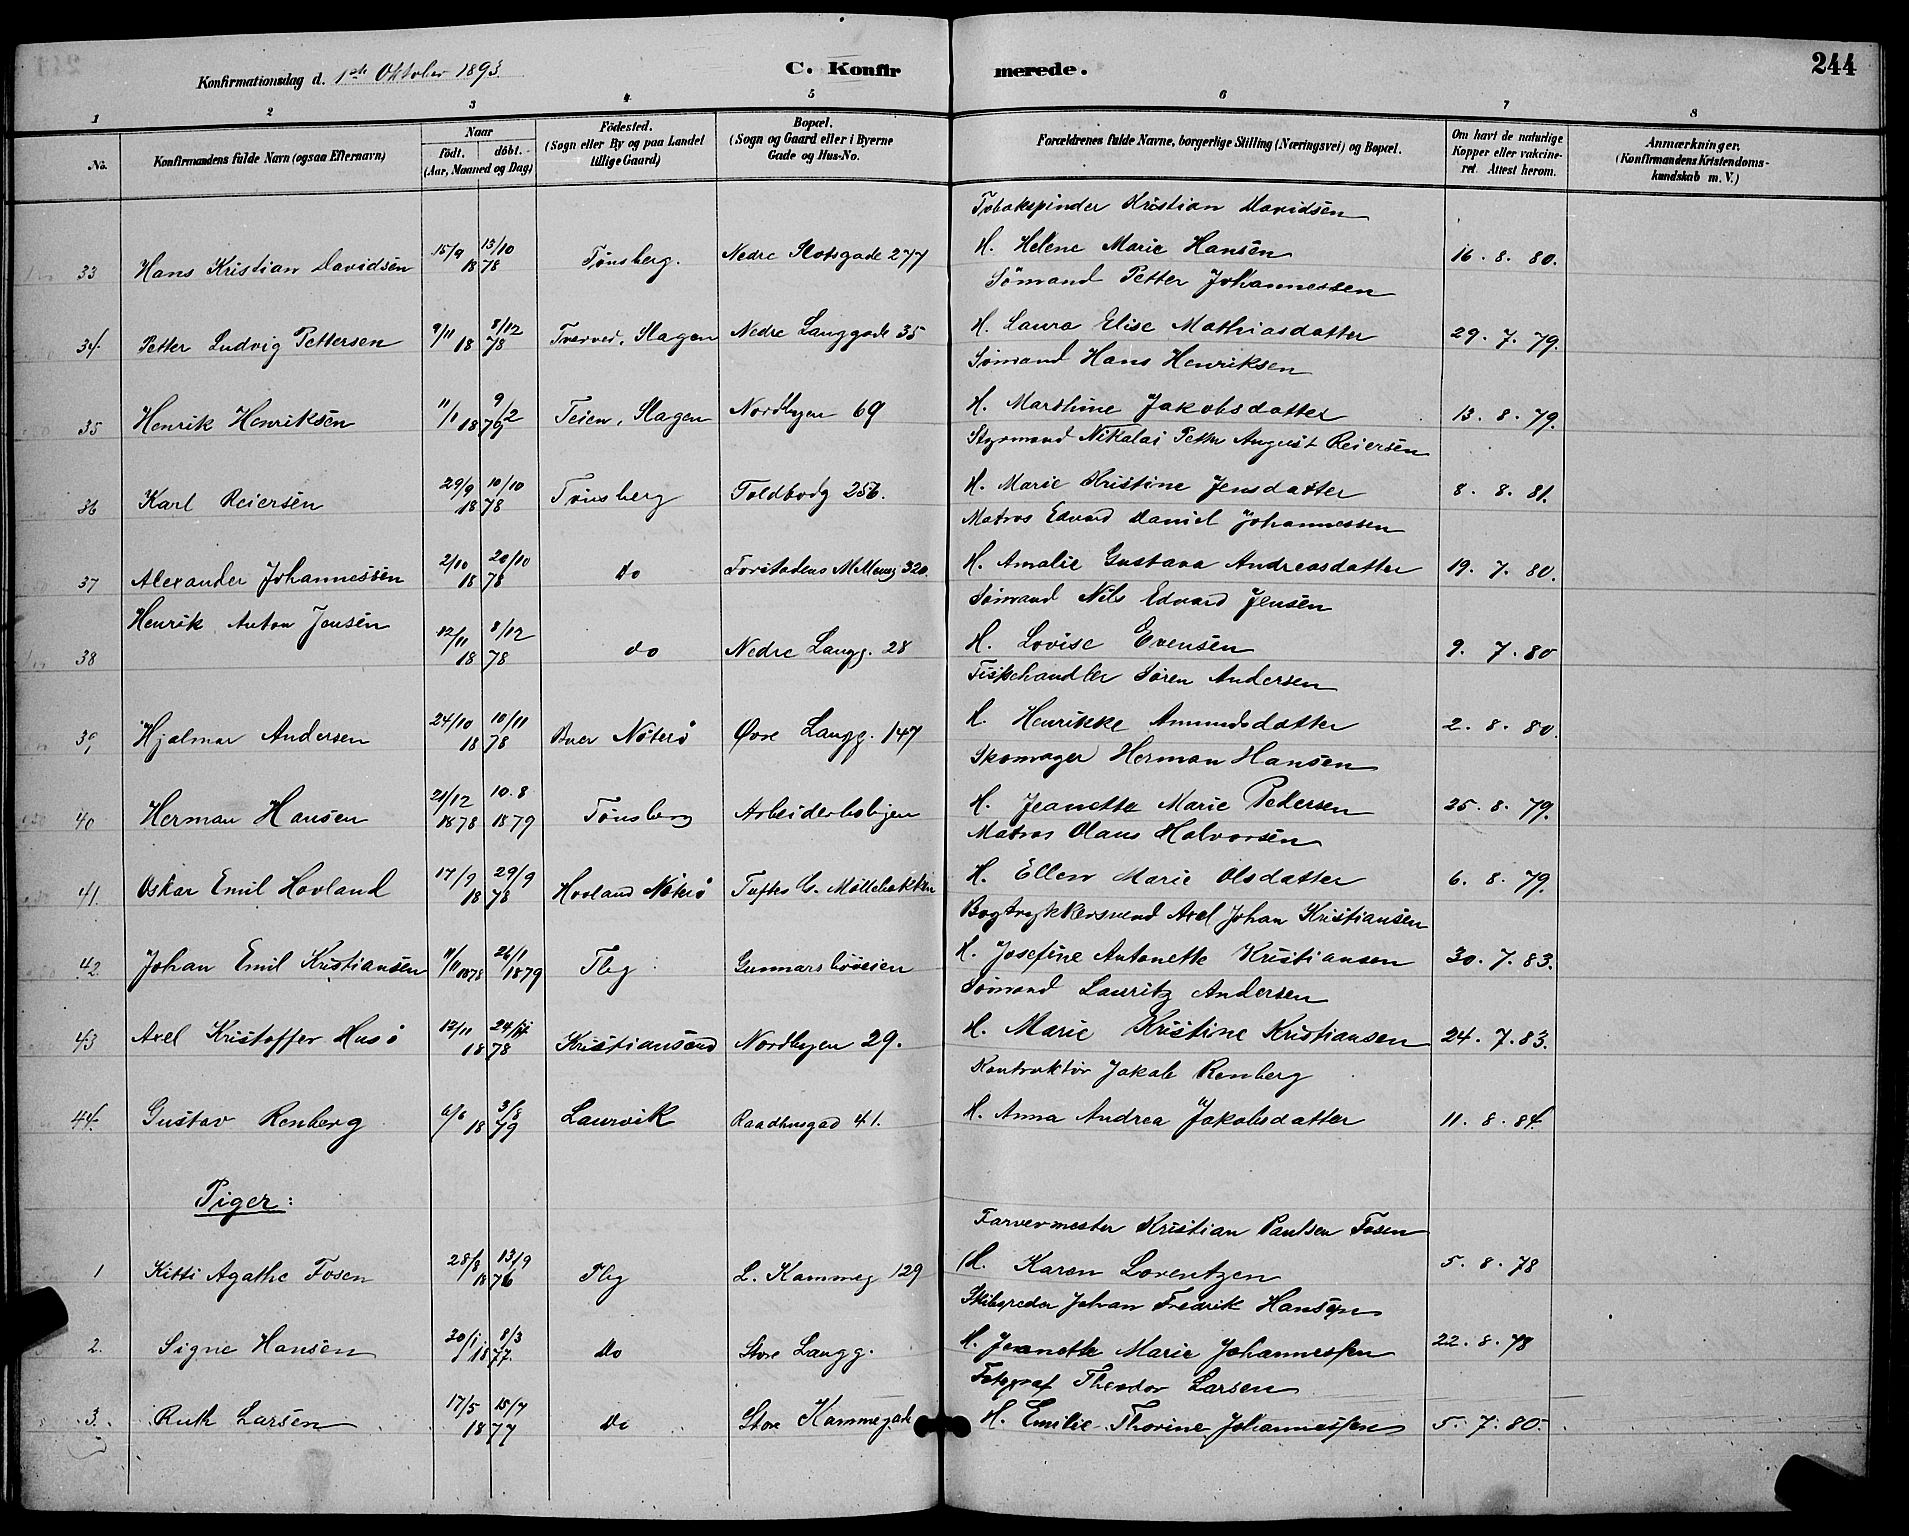 244
Konfirmationsdag d. 1ste Oktober 1893. C. Konfirmerede.
1 2 3 4 5 6 7 8
No. Konfirmandens fulde Navn (ogsaa Efternavn) Naar født. døbt. (Aar, Maaned og Dag) Fødested. (Sogn eller By og paa Landet tillige Gaard) Bopæl. (Sogn og Gaard eller i Byerne Gade og Hus-No. Forældrenes fulde Navne, borgerlige Stilling (Næringsvei) og Bopæl. Om havt de naturlige Kopper eller vakcineret. Attest herom. Anmærkninger. (Konfirmandens Kristendomskundskab m. V.)
Tobakspinder Kristian Davidsen
33 Hans Kristian Davidsen 15/9 13/10 1878 Tønsberg. Nedre Slotsgade 277 H. Helene Marie Hansen 16. 8. 80.
Sømand Petter Johannessen
34 Petter Ludvig Pettersen 9/11 8/12 1878 Tverved, Slagen Nedre Langgade 35 H. Laura Elise Mathiasdatter 29. 7. 79.
Sømand Hans Henriksen
35 Henrik Henriksen 11/1 9/2 1879 Teien, Slagen Nordbyen 69 H. Marthine Jakobsdatter 13. 8. 79.
Styrmand Nikolai Petter August Reiersen
36 Karl Reiersen 29/9 10/10 1878 Tønsberg Toldbodg 256. H. Marie Kristine Jensdatter 8. 8. 81.
Matros Edvard Daniel Johannessen
37 Alexander Johannessen 2/10 20/10 1878 do Forstadens Mølleveg 320. H. Amalie Gustava Andreasdatter 19. 7. 80.
Sømand Nils Edvard Jensen
38 Henrik Anton Jensen 12/11 8/12 1878 do Nedre Langg. 28 H. Lovise Evensen 9. 7. 80
Fiskehandler Søren Andersen
39 Hjalmar Andersen 24/10 10/11 1878 Buer Nøterø Øvre Langg. 147 H. Henrikke Amundsdatter 2. 8. 80.
Skomager Herman Hansen
40 Herman Hansen 21/12 1878 10.8 1879 Tønsberg Arbeiderboligen H. Jeanette Marie Pedersen 25. 8. 79.
Matros Olaus Halvorsen
41. Oskar Emil Hovland 17/9 29/9 1878 Hovland Nøterø Tufts G. Møllebakken H. Ellen Marie Olsdatter 6. 8. 79.
Bogtrykkersvend Axel Johan Kristiansen
42. Johan Emil Kristiansen 11/11 1878 26/1 1879 Tbg Gunnarsbøveien H. Josefine Antonette Kristiansen 30. 7. 83.
Sømand Lauritz Andersen
43 Axel Kristoffer Husø 12/11 24/11 1878 Kristiansand Nordbyen 29. H. Marie Kristine Kristiansen 24. 7. 83.
Kontraktør Jakob Renberg
44. Gustav Renberg 6/6 3/8 1879 Laurvik Raadhusgad 41. H. Anna Andrea Jakobsdatter 11. 8. 84.
Piger:
Farvermester Kristian Paulsen Fosen
1 Kitti Agathe Fosen 28/8 13/9 1876 Tbg L. Kammeg 129 H. Karen Lorentzen 5. 8. 78
Skibsreder Johan Fredrik Hansen
2. Signe Hansen 30/1 8/3 1877. do Store Langg. H. Jeanette Marie Johannessen 22. 8. 78
Fotograf Theodor Larsen
3. Ruth Larsen 17/5 15/7 1877 do Store Kammegade H. Emilie Thorine Johannessen 5. 7. 80.